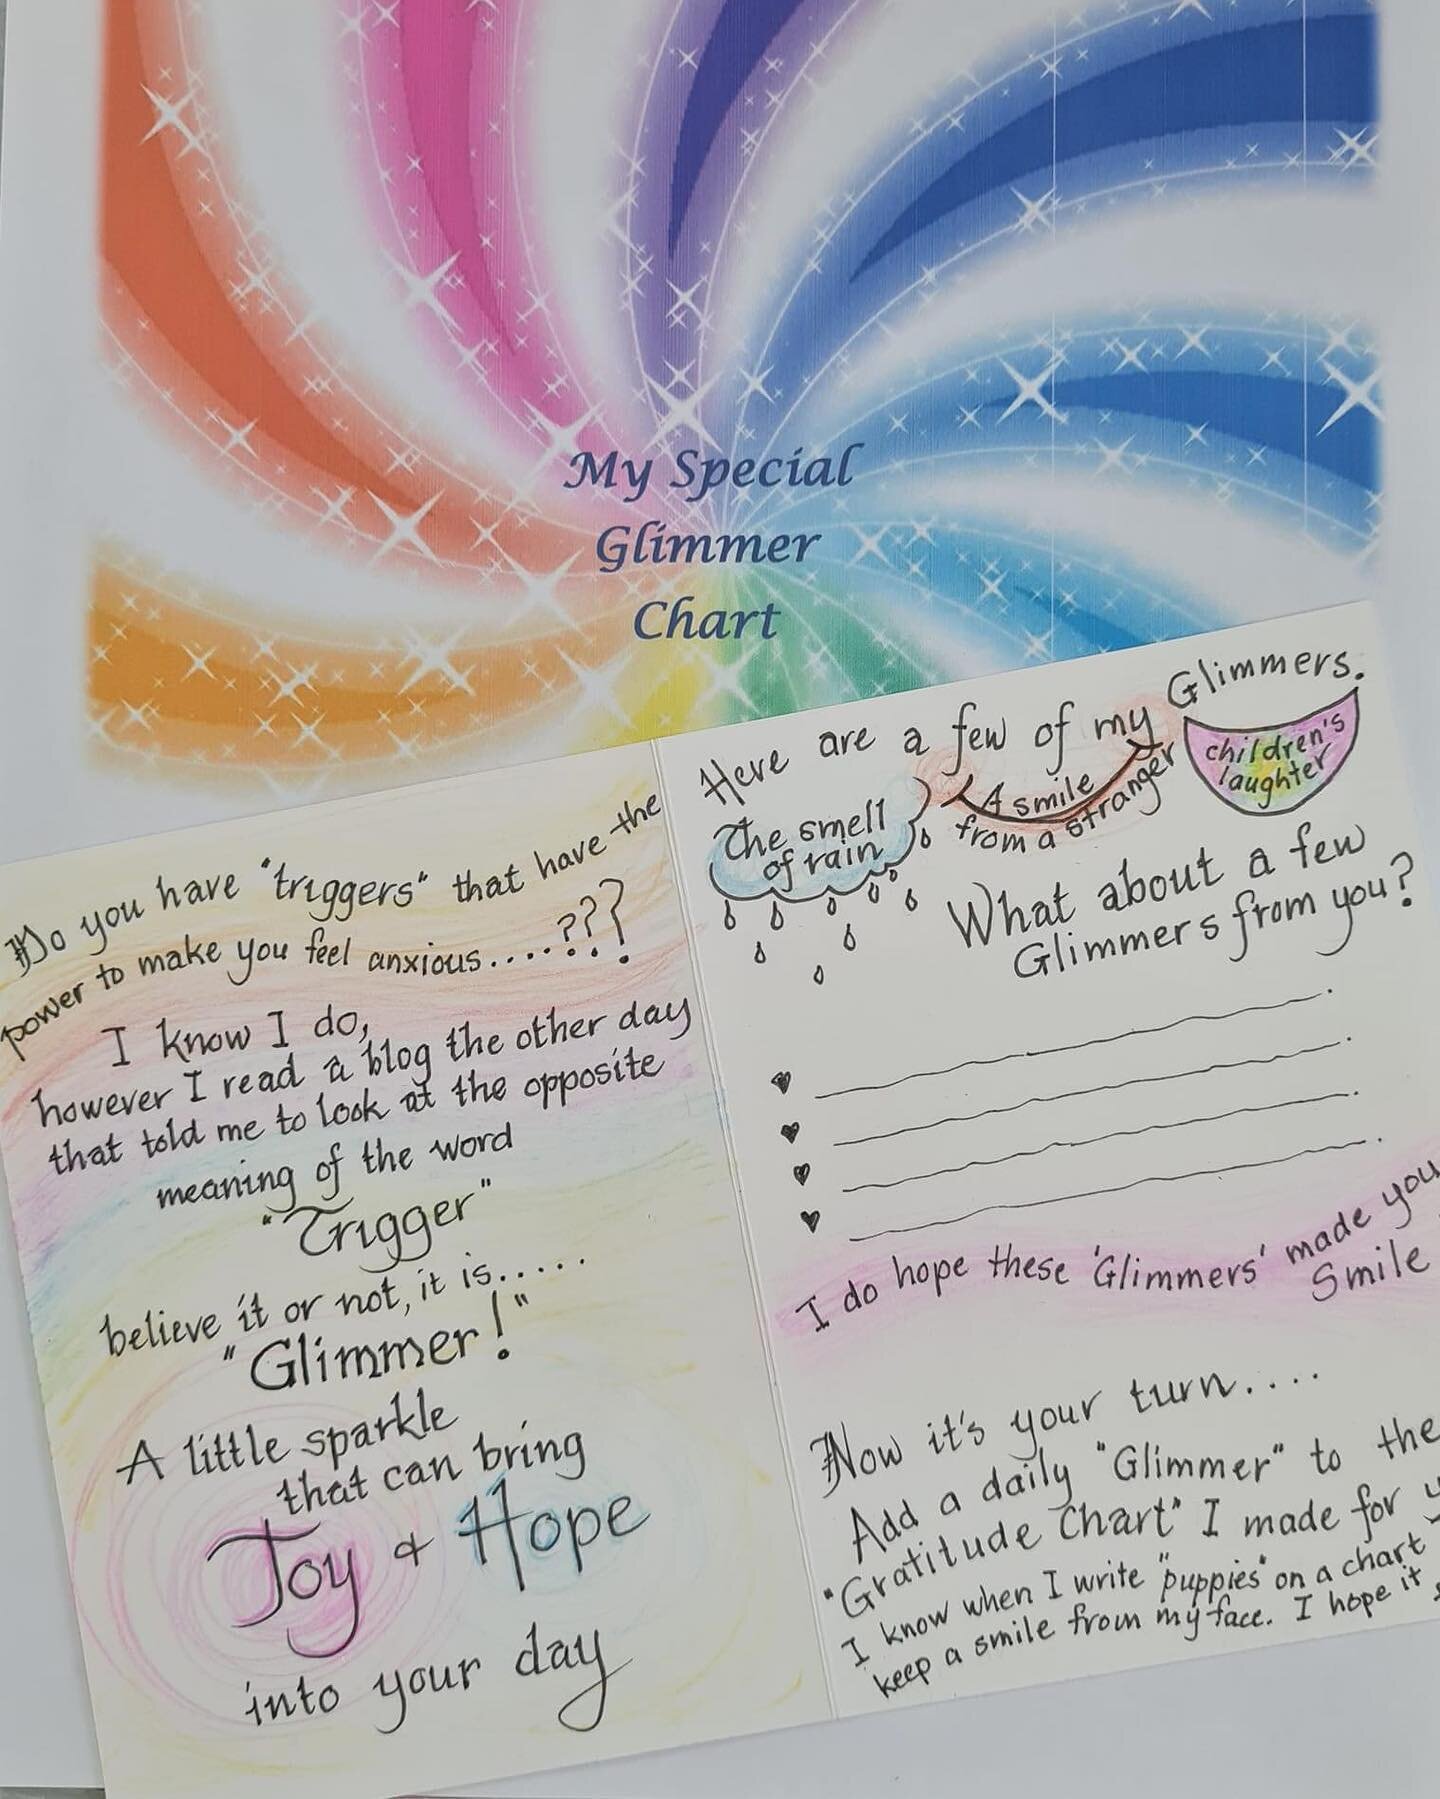 My Special
Glimmer
Chart
Do you have "triggers" that have the
power to make you feel anxious....???
I know I do,
however I read a blog the other day
that told me to look at the opposite
meaning of the word
"Trigger"
believe it or not, it is.....
"Glimmer!"
A little sparkle
that can bring
Joy & Hope
into your day
Here are a few of my Glimmers.
The smell
of rain
A smile
from a stranger
children's
laughter
What about a few
Glimmers from you?
I do hope these 'Glimmers' made you
Smile
Now it's your turn....
Add a daily "Glimmer" to the
"Gratitude Chart" I made for
I know when I write "puppies" on a chart
keep a smile from my face. I hope it